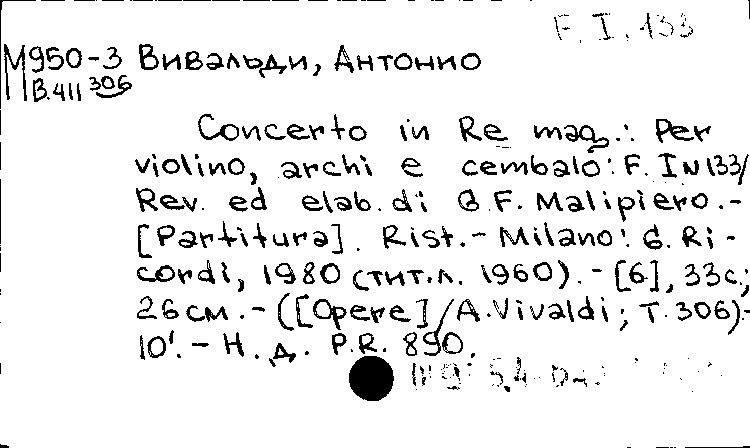 F. I. 133
М950-3 Вивальди, Антонио
В.411 306
Concerto in Re mag.: Per
violino, archi e cembalo: F. I N 133/
Rev. ed elab. di G. F. Malipiero. -
[Partitura]. Rist. - Milano: G. Ri-
cordi, 1980 (тит. л. 1960). - [6], 33 с.;
26 см. - ([Opere] / A. Vivaldi; T. 306) -
10'. - Н. д. P.R. 890.